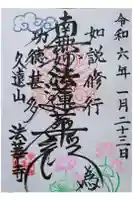 令和六年一月二十三日
為
如説修行
南無妙法蓮華経
功徳甚多
久遠山
法善寺